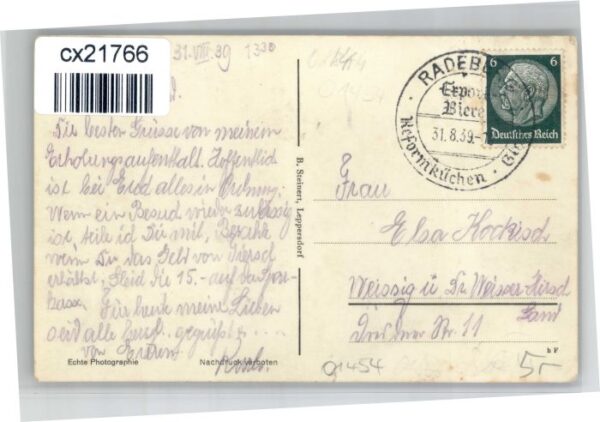 cx21766
31.VIII.39 1330
Die besten Grüsse von meinem
Erholungsaufenthalt. Hoffentlich
ist bei Euch alles in Ordnung.
Wenn ein Besuch wieder zulässig
ist, teile ich Dir mit, Bezahle
wenn Du das Geld von
erhältst, gleich die 15.- auf
kasse. Für heute meine Lieben
seid alle herzl. gegrüsst
von Eurem
Echte Photographie Nachdruck verboten
B. Steinert, Leppersdorf
RADEBE
Export
Biere
31.8.39.
Reformküchen
6 6
Deutsches Reich
Frau
Elsa Hockisch
Weissig ü Dr. Weisser Hirsch
Land
Dresdner Str. 11
b F
01454
5,-